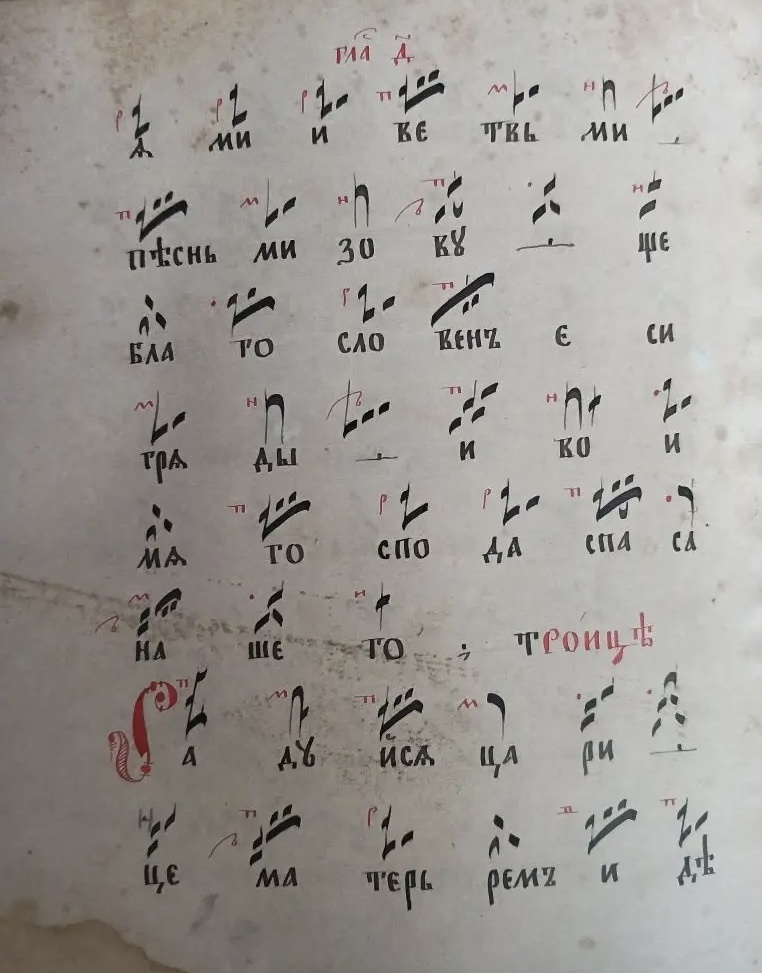 гла́с д҃
ѧ ми и ве твь ми
пѣснь ми зо вꙋ ще
бла го сло венъ є си
грѧ ды и ко и
мѧ го спо да спа са
на ше го ; троицѣ
Ра дꙋ йсѧ ца ри
це ма терь ремъ и дѣ